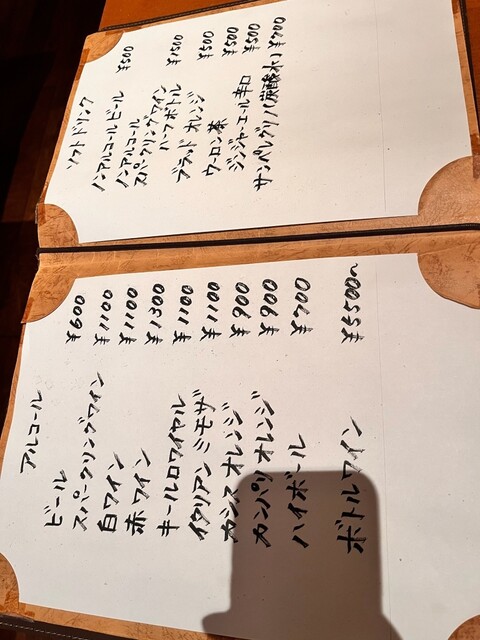 アルコール
ビール ¥600
スパークリングワイン ¥1100
白ワイン ¥1100
赤ワイン ¥1300
キールロワイヤル ¥1100
イタリアンミモザ ¥1100
カシスオレンジ ¥900
カンパリオレンジ ¥900
ハイボール ¥700
ボトルワイン ¥5500~
ソフトドリンク
ノンアルコールビール ¥500
ノンアルコール
スパークリングワイン
ハーフボトル ¥1500
ブラッドオレンジ ¥500
ウーロン茶 ¥500
ジンジャーエール辛口 ¥500
サンペレグリノ(炭酸水) ¥700